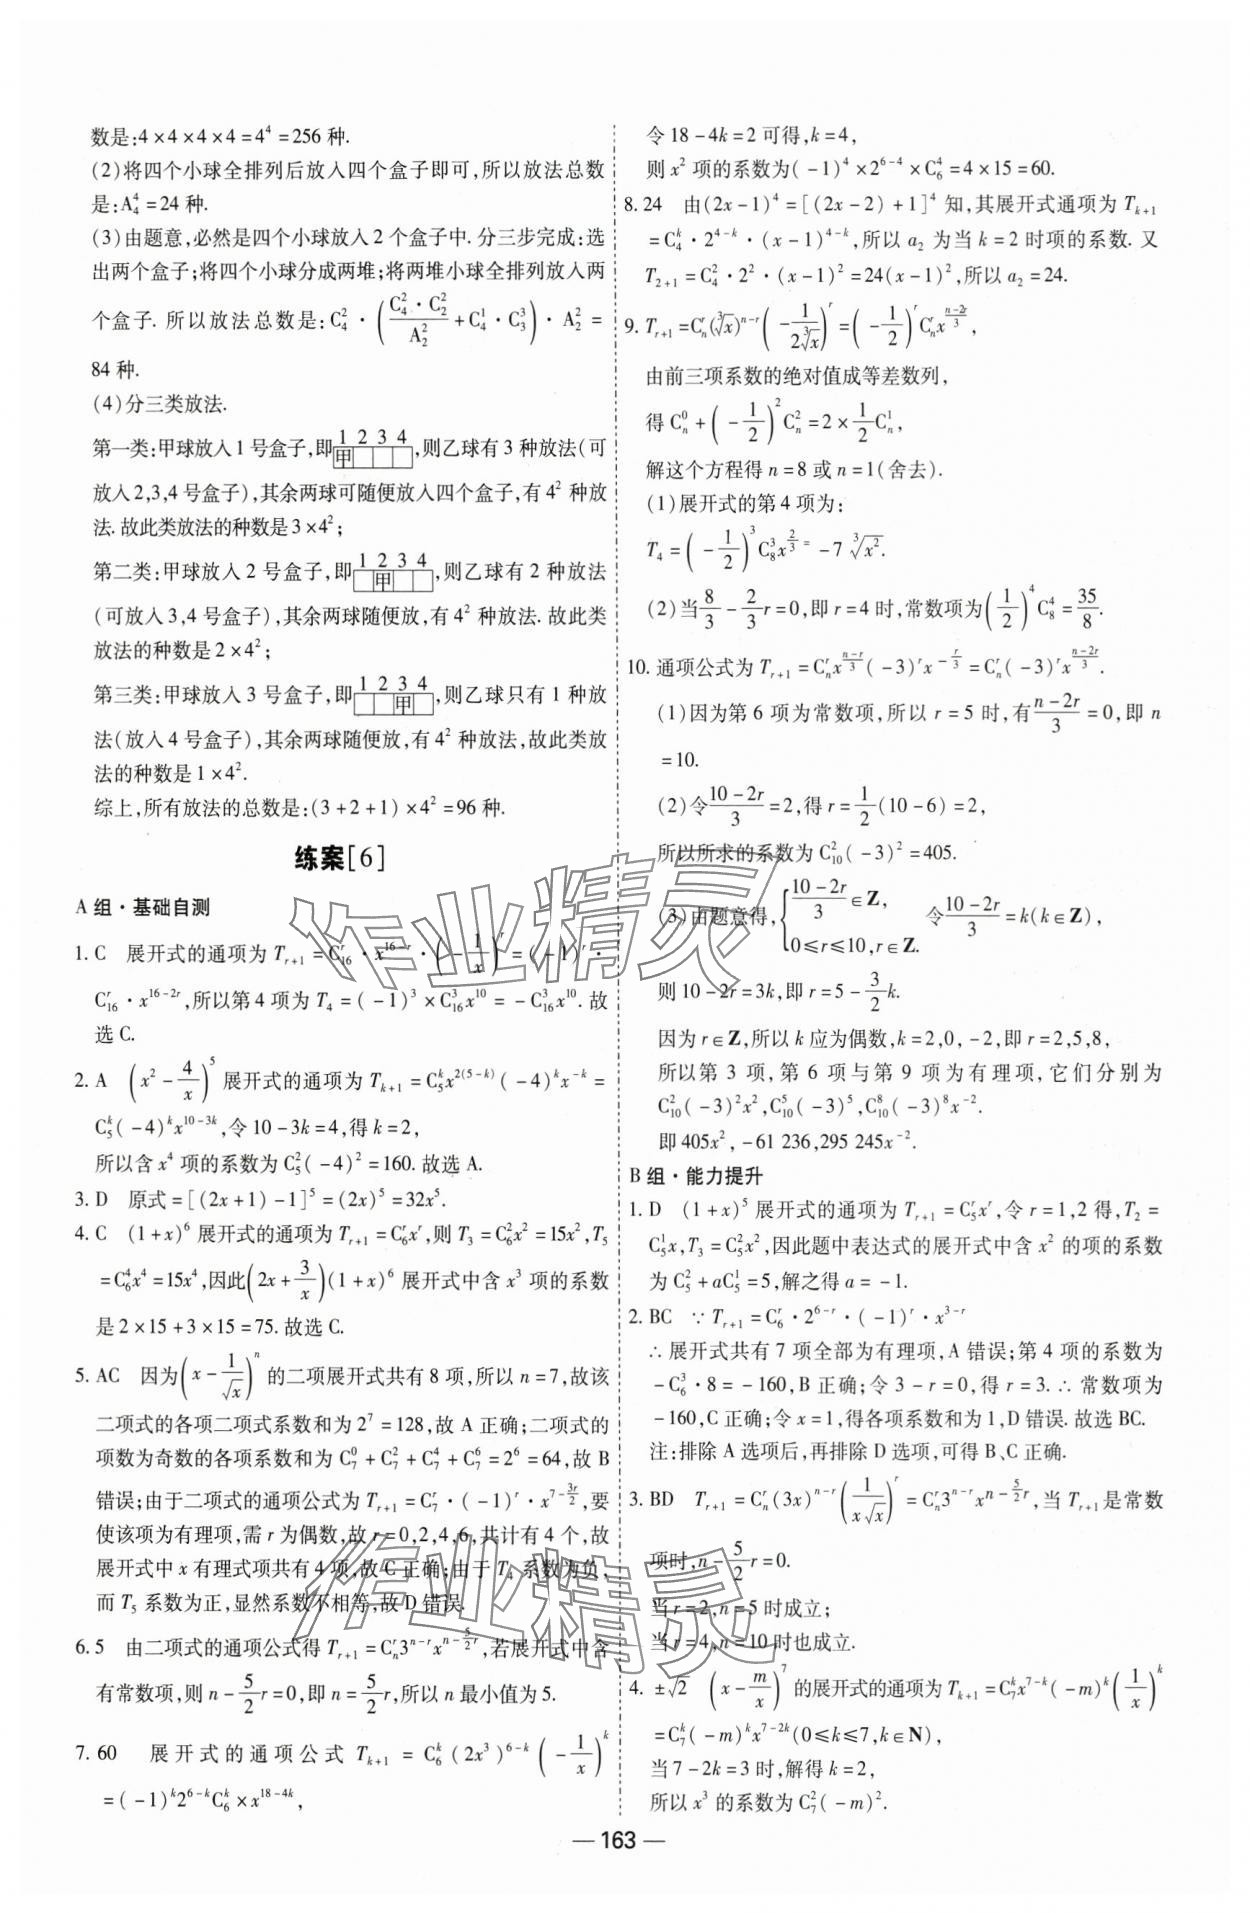 数是:4×4×4×4=4⁴=256 种.
(2)将四个小球全排列后放入四个盒子即可,所以放法总数
是:A₄⁴=24 种.
(3)由题意,必然是四个小球放入 2 个盒子中. 分三步完成:选
出两个盒子;将四个小球分成两堆;将两堆小球全排列放入两
个盒子. 所以放法总数是:C₄²·((C₄²·C₂²)/A₂²+C₄¹·C₃³)·A₂²=
84 种.
(4)分三类放法.
第一类:甲球放入 1 号盒子,即 1 2 3 4 甲 ,则乙球有 3 种放法(可
放入2,3,4 号盒子),其余两球可随便放入四个盒子,有 4² 种放
法. 故此类放法的种数是 3×4²;
第二类:甲球放入 2 号盒子,即 1 2 3 4 甲 ,则乙球有 2 种放法
(可放入3,4 号盒子),其余两球随便放,有 4² 种放法. 故此类
放法的种数是 2×4²;
第三类:甲球放入 3 号盒子,即 1 2 3 4 甲 ,则乙球只有 1 种放
法(放入4 号盒子),其余两球随便放,有 4² 种放法,故此类放
法的种数是 1×4².
综上,所有放法的总数是:(3+2+1)×4²=96 种.
练案[6]
A 组·基础自测
1. C 展开式的通项为 Tᵣ₊₁=C₁₆ʳ·x¹⁶⁻ʳ·(-1/x)ʳ=(-1)ʳ·
C₁₆ʳ·x¹⁶⁻²ʳ,所以第 4 项为 T₄=(-1)³×C₁₆³x¹⁰=-C₁₆³x¹⁰. 故
选 C.
2. A (x²-4/x)⁵ 展开式的通项为 Tₖ₊₁=C₅ᵏx²⁽⁵⁻ᵏ⁾(-4)ᵏx⁻ᵏ=
C₅ᵏ(-4)ᵏx¹⁰⁻³ᵏ,令 10-3k=4,得 k=2,
所以含 x⁴ 项的系数为 C₅²(-4)²=160. 故选 A.
3. D 原式=[(2x+1)-1]⁵=(2x)⁵=32x⁵.
4. C (1+x)⁶ 展开式的通项为 Tᵣ₊₁=C₆ʳxʳ,则 T₃=C₆²x²=15x²,T₅
=C₆⁴x⁴=15x⁴,因此(2x+3/x)(1+x)⁶ 展开式中含 x³ 项的系数
是 2×15+3×15=75. 故选 C.
5. AC 因为(x-1/√x)ⁿ 的二项展开式共有 8 项,所以 n=7,故该
二项式的各项二项式系数和为 2⁷=128,故 A 正确;二项式的
项数为奇数的各项系数和为 C₇⁰+C₇²+C₇⁴+C₇⁶=2⁶=64,故 B
错误;由于二项式的通项公式为 Tᵣ₊₁=C₇ʳ·(-1)ʳ·x^(7-3r/2),要
使该项为有理项,需 r 为偶数,故 r=0,2,4,6,共计有 4 个,故
展开式中 x 有理式项共有 4 项,故 C 正确;由于 T₄ 系数为负,
而 T₅ 系数为正,显然系数不相等,故 D 错误.
6. 5 由二项式的通项公式得 Tᵣ₊₁=Cₙʳ3ⁿ⁻ʳx^(n-5/2r),若展开式中含
有常数项,则 n-5/2r=0,即 n=5/2r,所以 n 最小值为 5.
7. 60 展开式的通项公式 Tₖ₊₁=C₆ᵏ(2x³)⁶⁻ᵏ(-1/x)ᵏ
=(-1)ᵏ2⁶⁻ᵏC₆ᵏ×x¹⁸⁻⁴ᵏ,
令 18-4k=2 可得,k=4,
则 x² 项的系数为(-1)⁴×2⁶⁻⁴×C₆⁴=4×15=60.
8. 24 由(2x-1)⁴=[(2x-2)+1]⁴ 知,其展开式通项为 Tₖ₊₁
=C₄ᵏ·2⁴⁻ᵏ·(x-1)⁴⁻ᵏ,所以 a₂ 为当 k=2 时项的系数. 又
T₂₊₁=C₄²·2²·(x-1)²=24(x-1)²,所以 a₂=24.
9. Tᵣ₊₁=Cₙʳ(∛x)ⁿ⁻ʳ(-1/(2∛x))ʳ=(-1/2)ʳCₙʳx^((n-2r)/3),
由前三项系数的绝对值成等差数列,
得 Cₙ⁰+(-1/2)²Cₙ²=2×1/2Cₙ¹,
解这个方程得 n=8 或 n=1(舍去).
(1)展开式的第 4 项为:
T₄=(-1/2)³C₈³x^(2/3)=-7∛x².
(2)当8/3-2/3r=0,即 r=4 时,常数项为(1/2)⁴C₈⁴=35/8.
10. 通项公式为 Tᵣ₊₁=Cₙʳx^((n-r)/3)(-3)ʳx^(-r/3)=Cₙʳ(-3)ʳx^((n-2r)/3).
(1)因为第 6 项为常数项,所以 r=5 时,有(n-2r)/3=0,即 n
=10.
(2)令(10-2r)/3=2,得 r=1/2(10-6)=2,
所以所求的系数为 C₁₀²(-3)²=405.
(3)由题意得,{(10-2r)/3∈Z, 0≤r≤10,r∈Z. 令(10-2r)/3=k(k∈Z),
则 10-2r=3k,即 r=5-3/2k.
因为 r∈Z,所以 k 应为偶数,k=2,0,-2,即 r=2,5,8,
所以第 3 项,第 6 项与第 9 项为有理项,它们分别为
C₁₀²(-3)²x²,C₁₀⁵(-3)⁵,C₁₀⁸(-3)⁸x⁻².
即 405x²,-61 236,295 245x⁻².
B 组·能力提升
1. D (1+x)⁵ 展开式的通项为 Tᵣ₊₁=C₅ʳxʳ,令 r=1,2 得,T₂=
C₅¹x,T₃=C₅²x²,因此题中表达式的展开式中含 x² 的项的系数
为 C₅²+aC₅¹=5,解之得 a=-1.
2. BC ∵Tᵣ₊₁=C₆ʳ·2⁶⁻ʳ·(-1)ʳ·x³⁻ʳ
∴展开式共有 7 项全部为有理项,A 错误;第 4 项的系数为
-C₆³·8=-160,B 正确;令 3-r=0,得 r=3. ∴常数项为
-160,C 正确;令 x=1,得各项系数和为 1,D 错误. 故选 BC.
注:排除 A 选项后,再排除 D 选项,可得 B、C 正确.
3. BD Tᵣ₊₁=Cₙʳ(3x)ⁿ⁻ʳ(1/(x√x))ʳ=Cₙʳ3ⁿ⁻ʳx^(n-5/2r),当 Tᵣ₊₁ 是常数
项时,n-5/2r=0.
当 r=2,n=5 时成立;
当 r=4,n=10 时也成立.
4. ±√2 (x-m/x)⁷ 的展开式的通项为 Tₖ₊₁=C₇ᵏx⁷⁻ᵏ(-m)ᵏ(1/x)ᵏ
=C₇ᵏ(-m)ᵏx⁷⁻²ᵏ(0≤k≤7,k∈N),
当 7-2k=3 时,解得 k=2,
所以 x³ 的系数为 C₇²(-m)².
— 163 —
作业精灵
作业精灵